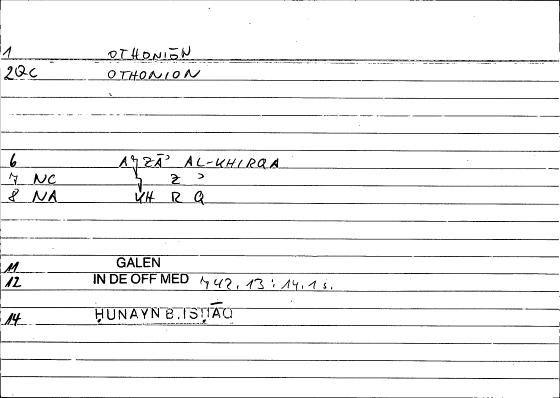 1 OTHONIŌN
2QC OTHONION
6 AǦZĀʾ AL-KHIRQA
7 NC Z ʾ
8 NA KH R Q
11 GALEN
12 IN DE OFF MED 742, 13 : 14, 1 s.
14 ḤUNAYN B. ISḤĀQ